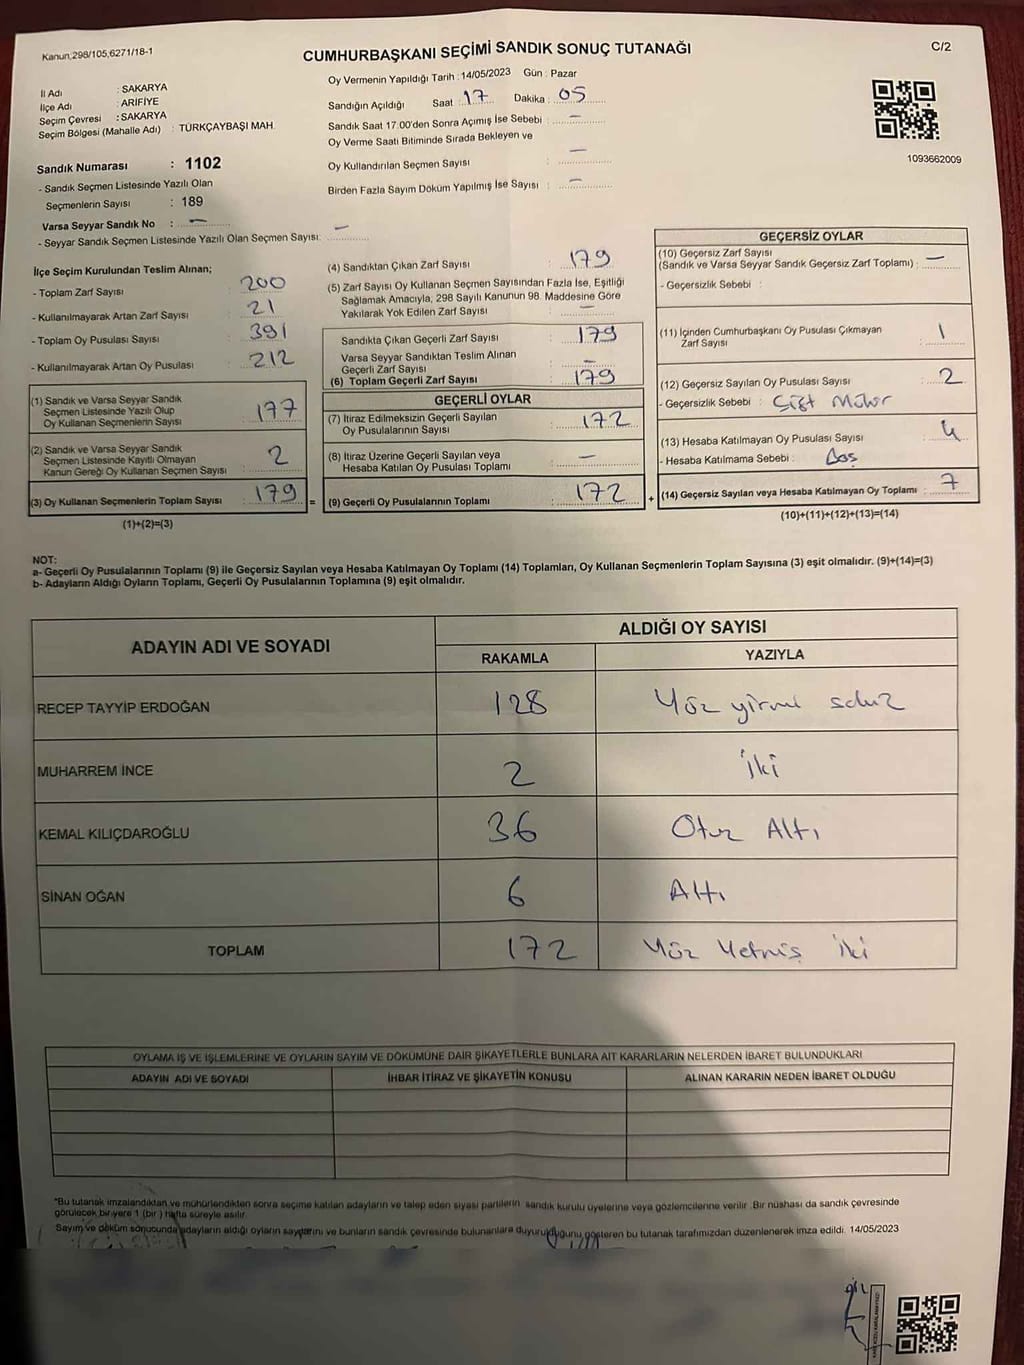 Kanun,298/105,6271/18-1
C/2
CUMHURBAŞKANI SEÇİMİ SANDIK SONUÇ TUTANAĞI
İl Adı : SAKARYA
İlçe Adı : ARİFİYE
Seçim Çevresi : SAKARYA
Seçim Bölgesi (Mahalle Adı) : TÜRKÇAYBAŞI MAH.
Sandık Numarası : 1102
- Sandık Seçmen Listesinde Yazılı Olan
Seçmenlerin Sayısı : 189
Varsa Seyyar Sandık No : –
- Seyyar Sandık Seçmen Listesinde Yazılı Olan Seçmen Sayısı: –
Oy Vermenin Yapıldığı Tarih : 14/05/2023 Gün : Pazar
Sandığın Açıldığı Saat : 17 Dakika : 05
Sandık Saat 17.00'den Sonra Açımış İse Sebebi : –
Oy Verme Saati Bitiminde Sırada Bekleyen ve
Oy Kullandırılan Seçmen Sayısı : –
Birden Fazla Sayım Döküm Yapılmış İse Sayısı : –
1093662009
İlçe Seçim Kurulundan Teslim Alınan;
- Toplam Zarf Sayısı : 200
- Kullanılmayarak Artan Zarf Sayısı : 21
- Toplam Oy Pusulası Sayısı : 391
- Kullanılmayarak Artan Oy Pusulası : 212
(1) Sandık ve Varsa Seyyar Sandık
Seçmen Listesinde Yazılı Olup
Oy Kullanan Seçmenlerin Sayısı : 177
(2) Sandık ve Varsa Seyyar Sandık
Seçmen Listesinde Kayıtlı Olmayan
Kanun Gereği Oy Kullanan Seçmen Sayısı : 2
(3) Oy Kullanan Seçmenlerin Toplam Sayısı : 179 =
(1)+(2)=(3)
(4) Sandıktan Çıkan Zarf Sayısı : 179
(5) Zarf Sayısı Oy Kullanan Seçmen Sayısından Fazla İse, Eşitliği
Sağlamak Amacıyla, 298 Sayılı Kanunun 98. Maddesine Göre
Yakılarak Yok Edilen Zarf Sayısı : –
Sandıkta Çıkan Geçerli Zarf Sayısı : 179
Varsa Seyyar Sandıktan Teslim Alınan
Geçerli Zarf Sayısı : –
(6) Toplam Geçerli Zarf Sayısı : 179
GEÇERLİ OYLAR
(7) İtiraz Edilmeksizin Geçerli Sayılan
Oy Pusulalarının Sayısı : 172
(8) İtiraz Üzerine Geçerli Sayılan veya
Hesaba Katılan Oy Pusulası Toplamı : –
(9) Geçerli Oy Pusulalarının Toplamı : 172 +
GEÇERSİZ OYLAR
(10) Geçersiz Zarf Sayısı
(Sandık ve Varsa Seyyar Sandık Geçersiz Zarf Toplamı) : –
- Geçersizlik Sebebi :
(11) İçinden Cumhurbaşkanı Oy Pusulası Çıkmayan
Zarf Sayısı : 1
(12) Geçersiz Sayılan Oy Pusulası Sayısı : 2
- Geçersizlik Sebebi : Çift Mühür
(13) Hesaba Katılmayan Oy Pusulası Sayısı : 4
- Hesaba Katılmama Sebebi : Boş
(14) Geçersiz Sayılan veya Hesaba Katılmayan Oy Toplamı : 7
(10)+(11)+(12)+(13)=(14)
NOT:
a- Geçerli Oy Pusulalarının Toplamı (9) ile Geçersiz Sayılan veya Hesaba Katılmayan Oy Toplamı (14) Toplamları, Oy Kullanan Seçmenlerin Toplam Sayısına (3) eşit olmalıdır. (9)+(14)=(3)
b- Adayların Aldığı Oyların Toplamı, Geçerli Oy Pusulalarının Toplamına (9) eşit olmalıdır.
ADAYIN ADI VE SOYADI
ALDIĞI OY SAYISI
RAKAMLA YAZIYLA
RECEP TAYYİP ERDOĞAN 128 Yüz yirmi sekiz
MUHARREM İNCE 2 İki
KEMAL KILIÇDAROĞLU 36 Otuz Altı
SİNAN OĞAN 6 Altı
TOPLAM 172 Yüz Yetmiş iki
OYLAMA İŞ VE İŞLEMLERİNE VE OYLARIN SAYIM VE DÖKÜMÜNE DAİR ŞİKAYETLERLE BUNLARA AİT KARARLARIN NELERDEN İBARET BULUNDUKLARI
ADAYIN ADI VE SOYADI İHBAR İTİRAZ VE ŞİKAYETİN KONUSU ALINAN KARARIN NEDEN İBARET OLDUĞU
*Bu tutanak imzalandıktan ve mühürlendikten sonra seçime katılan adayların ve talep eden siyasi partilerin sandık kurulu üyelerine veya gözlemcilerine verilir. Bir nüshası da sandık çevresinde
görülecek bir yere 1 (bir) hafta süreyle asılır.
Sayım ve döküm sonucunda adayların aldığı oyların sayılarını ve bunların sandık çevresinde bulunanlara duyurulduğunu gösteren bu tutanak tarafımızdan düzenlenerek imza edildi. 14/05/2023